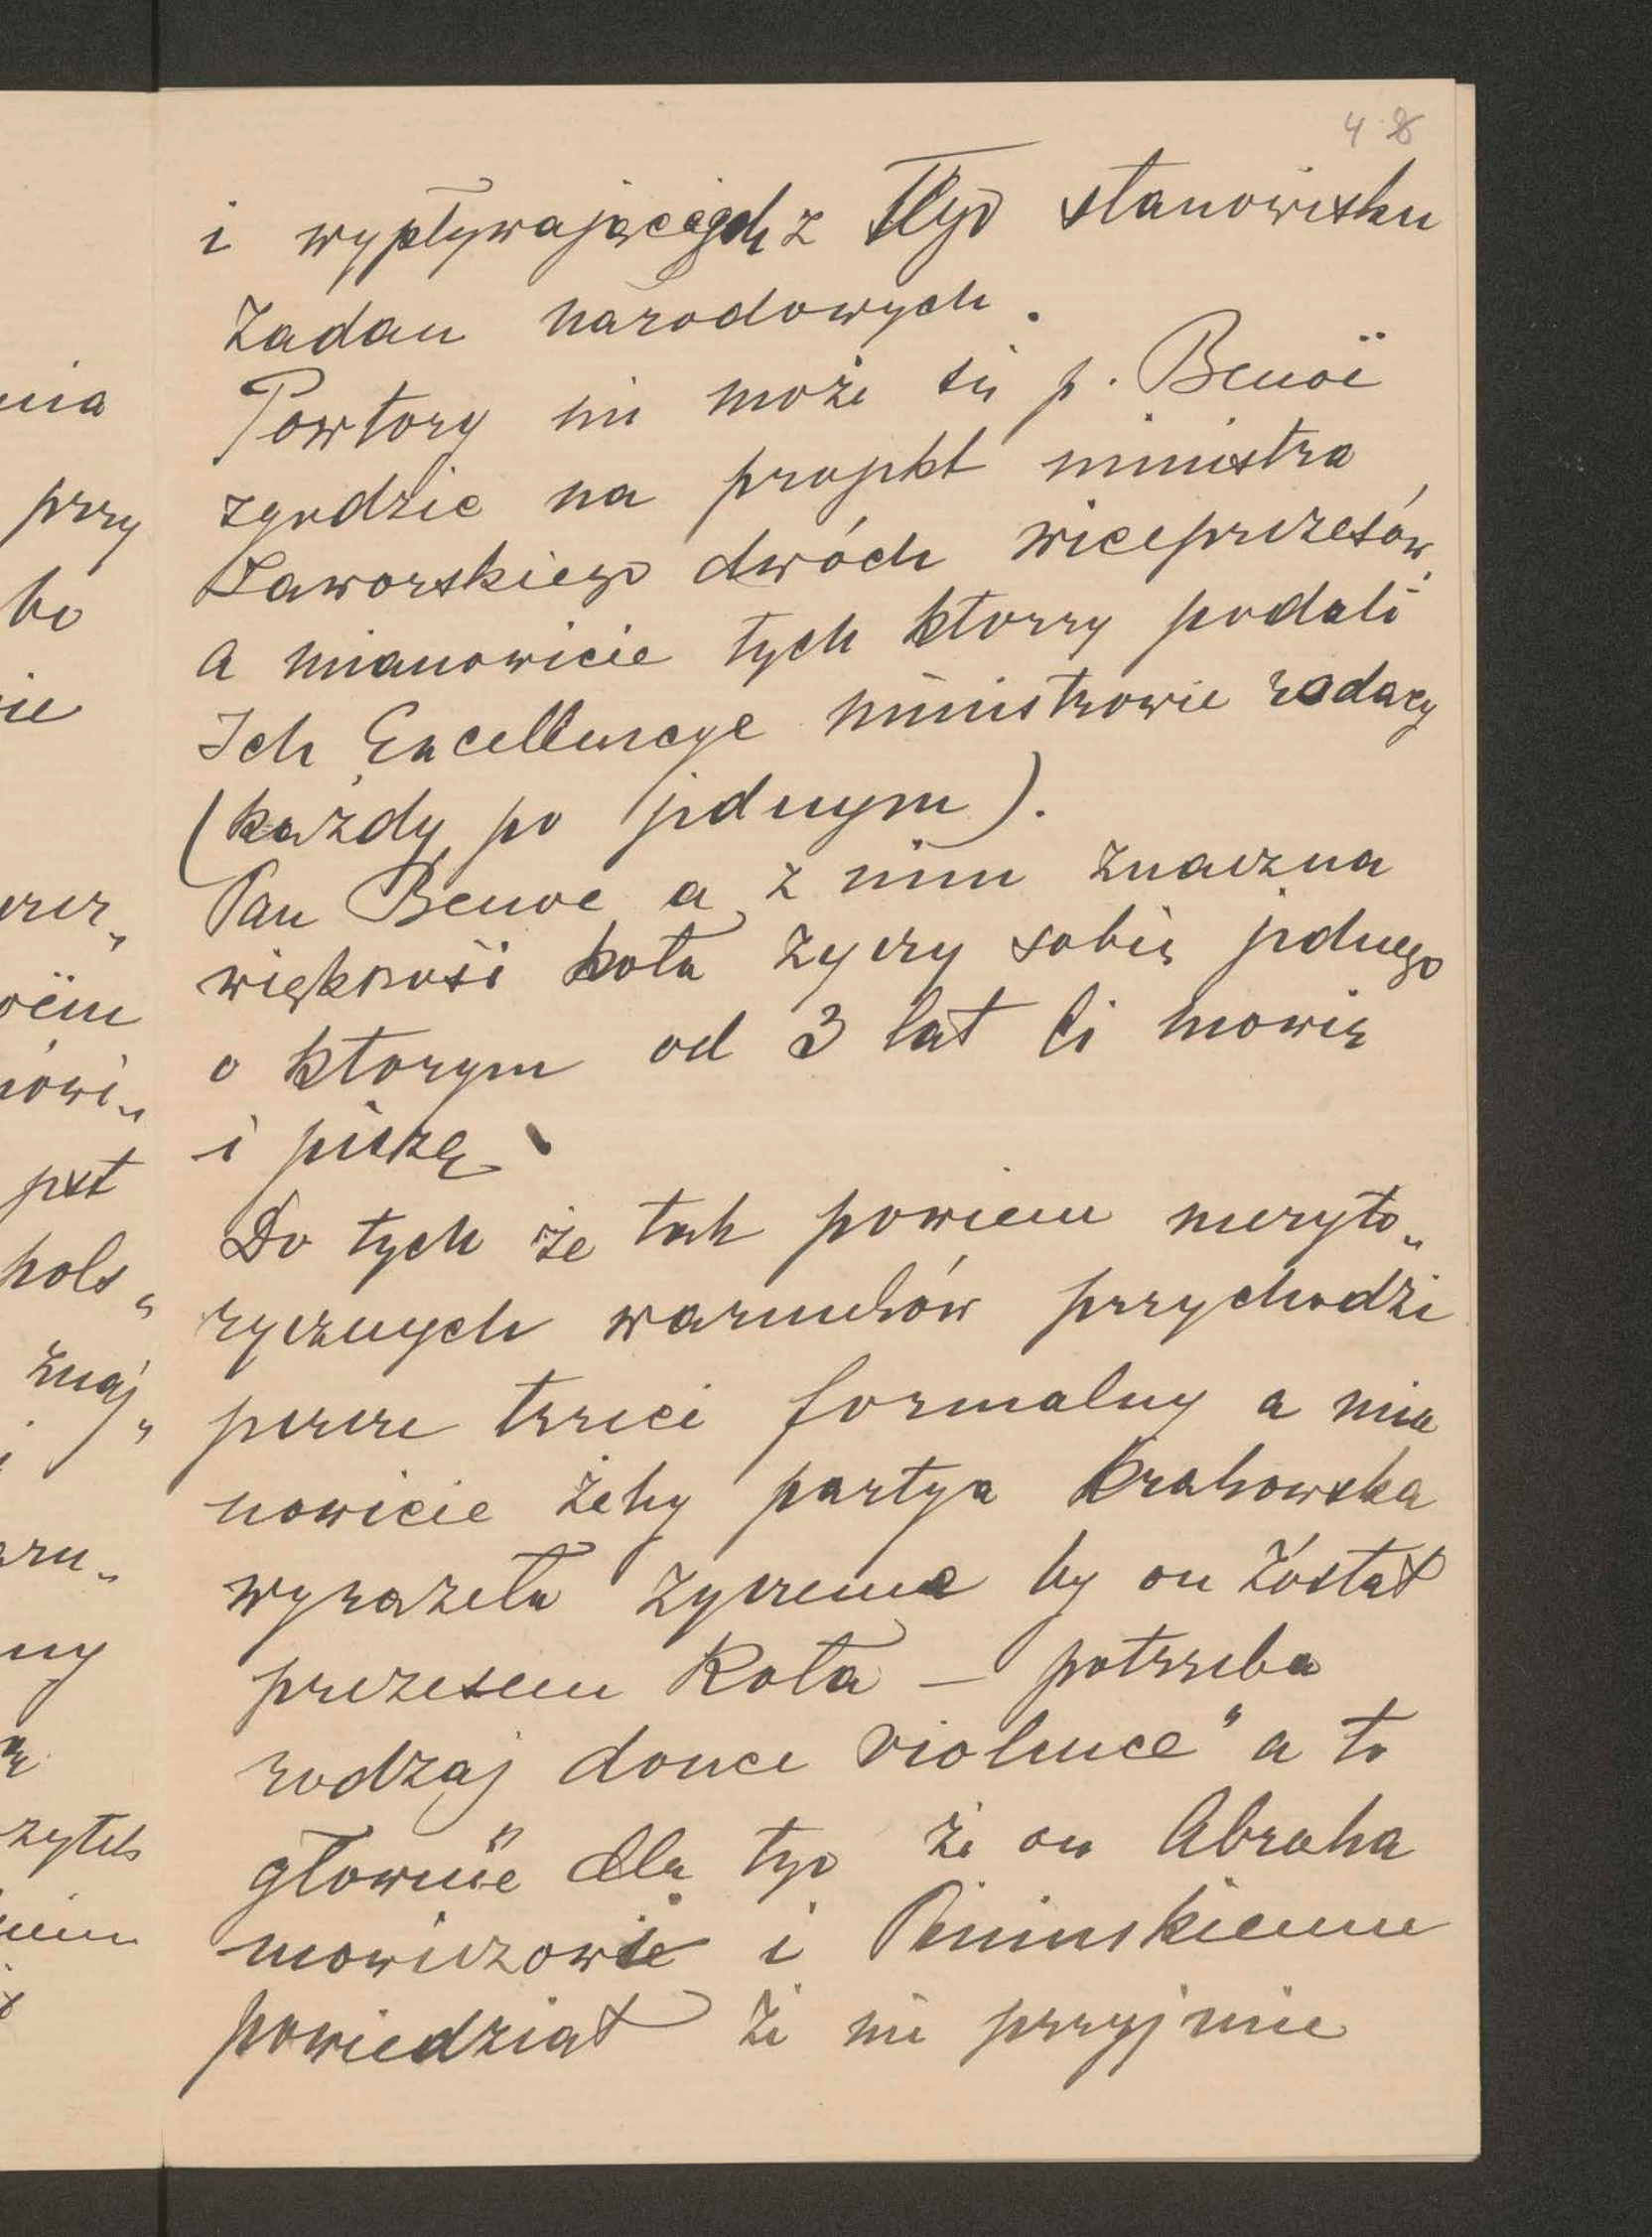 48
i wypływających z tego stanowisku
zadan narodowych.
Powtory nie może się p. Benoë
zgodzic na projekt ministra
Jaworskiego dwóch wiceprezesów,
a mianowicie tych ktorzy podali
Ich Excellencye ministrowie radacy
(każdy po jednym).
Pan Benoe a z nim znaczna
większość koła zyczy sobie jednego
o ktorym od 3 lat Ci mowię
i piszę.
Do tych że tak powiem meryto„
rycznych warunków przychodzi
jeszcze trzeci formalny a mia
nowicie żeby partya Krakowska
wyraziła zyczenie by on został
prezesem Koła — potrzeba
rodzaj douce violence" a to
głownie dla tego że on Abraha
mowiczowi i Pininskiemu
powiedział że nie przyjmie
nia
przy
bo
ie
öem
mówi„
jest
pols„
znaj„
ny